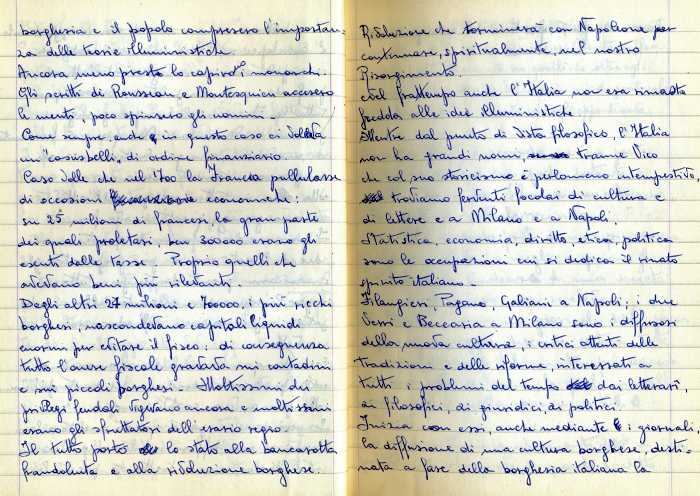 borghesia e il popolo compresero l'importan-
za delle teorie illuministiche.
Ancora meno presto lo capirono i monarchi.
Gli scritti di Rousseau e Montesquieu accesero
le menti, poco spinsero gli uomini.
Come sempre, anche in questo caso ci voleva
un "casus belli" di ordine finanziario.
Caso volle che nel '700 la Francia pullulasse
di occasioni economiche:
su 25 milioni di francesi la gran parte
dei quali proletari, ben 300000 erano gli
esenti dalle tasse. Proprio quelli che
avevano beni più rilevanti.
Degli altri 24 milioni e 700000, i più ricchi
borghesi, nascondevano capitali liquidi
enormi per evitare il fisco: di conseguenza
tutto l'onere fiscale gravava sui contadini
e sui piccoli borghesi. Moltissimi dei
privilegi feudali vigevano ancora e moltissimi
erano gli sfruttatori dell'erario regio.
Il tutto portò lo stato alla bancarotta
fraudolenta e alla rivoluzione borghese.
Rivoluzione che terminerà con Napoleone per
continuare, spiritualmente, nel nostro
Risorgimento.
Nel frattempo anche l'Italia non era rimasta
fredda alle idee illuministiche.
Mentre dal punto di vista filosofico, l'Italia
non ha grandi nomi, tranne Vico
che col suo storicismo è perlomeno intempestivo,
troviamo ferventi focolai di cultura e
di lettere e a Milano e a Napoli.
Statistica, economia, diritto, etica, politica
sono le occupazioni cui si dedica il rinato
spirito italiano.
Filangieri, Pagano, Galiani a Napoli; i due
Verri e Beccaria a Milano sono i diffusori
della nuova cultura, i critici attenti delle
tradizioni e delle riforme, interessati a
tutti i problemi del tempo dai letterari,
ai filosofici, ai giuridici, ai politici.
Inizia con essi, anche mediante i giornali,
la diffusione di una cultura borghese, desti-
nata a fare della borghesia italiana la